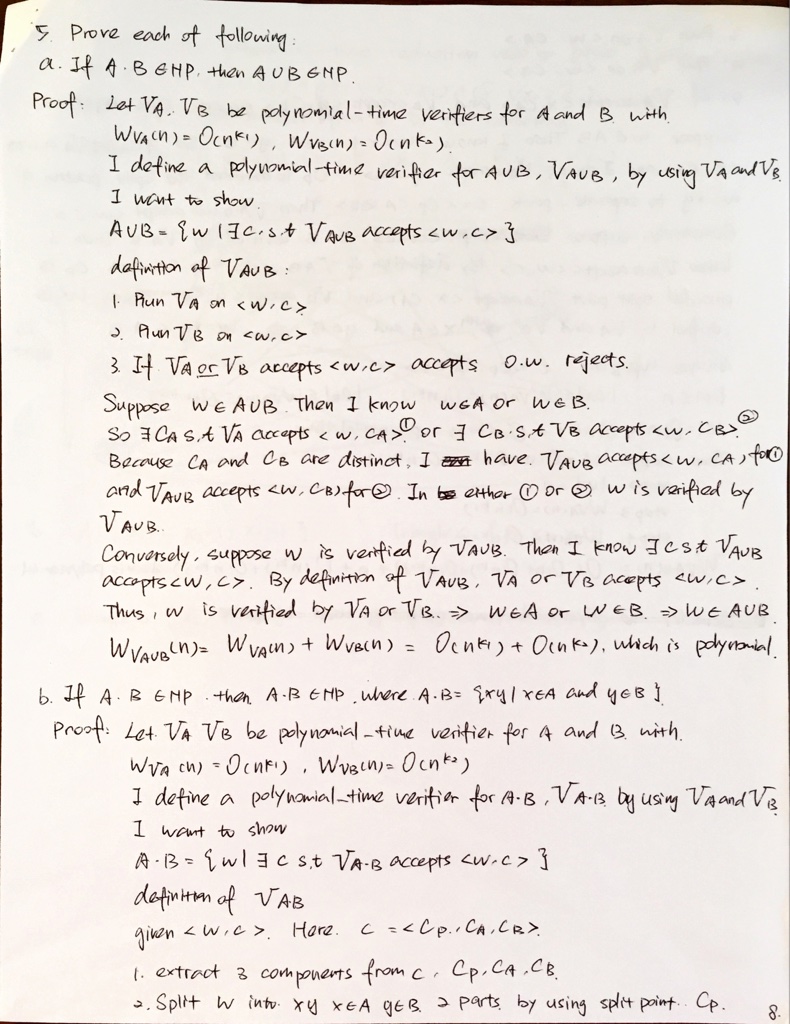 5. Prove each of following:
a. If A, B ∈ NP, then A∪B ∈ NP.
Proof: Let VA, VB be polynomial-time verifiers for A and B with
WVA(n) = O(n^k1), WVB(n) = O(n^k2).
I define a polynomial-time verifier for A∪B, VA∪B, by using VA and VB.
I want to show.
A∪B = {w | ∃c, s.t VA∪B accepts <w,c>}
definition of VA∪B:
1. Run VA on <w,c>
2. Run VB on <w,c>
3. If VA or VB accepts <w,c> accepts o.w. rejects.
Suppose w∈A∪B. Then I know w∈A or w∈B.
So ∃CA s,t VA accepts <w, CA>① or ∃ CB s,t VB accepts <w, CB>②
Because CA and CB are distinct, I have VA∪B accepts <w, CA) for①
and VA∪B accepts <w, CB) for②. In either ① or ② w is verified by
VA∪B.
Conversely, suppose w is verified by VA∪B. Then I know ∃c s,t VA∪B
accepts <w, c>. By definition of VA∪B, VA or VB accepts <w,c>.
Thus, w is verified by VA or VB. ⇒ w∈A or w∈B. ⇒ w∈A∪B.
WVA∪B(n) = WVA(n) + WVB(n) = O(n^k1) + O(n^k2), which is polynomial.
b. If A, B ∈ NP, then A·B ∈ NP, where A·B = {xy | x∈A and y∈B}
Proof: Let VA VB be polynomial-time verifier for A and B with.
WVA(n) = O(n^k1), WVB(n) = O(n^k2)
I define a polynomial-time verifier for A·B, VA·B, by using VA and VB.
I want to show
A·B = {w | ∃ c s,t VA·B accepts <w,c>}
definition of VAB
given <w,c>. Here. C = <Cp, CA, CB>.
1. extract 3 components from c, Cp, CA, CB.
2. Split w into xy x∈A y∈B 2 parts by using split point Cp.
8.